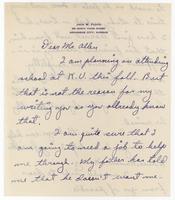 JACK W. FLOOD
ARKANSAS CITY, KANSAS
Dear Mr Allen
I am planning on attending
school at K.U. this fall. But
that is not the reason for my
writing you as you allready know
that.
I am quite sure that I
am going to need a job to help
me through. My father has told
me that he doesn't want me